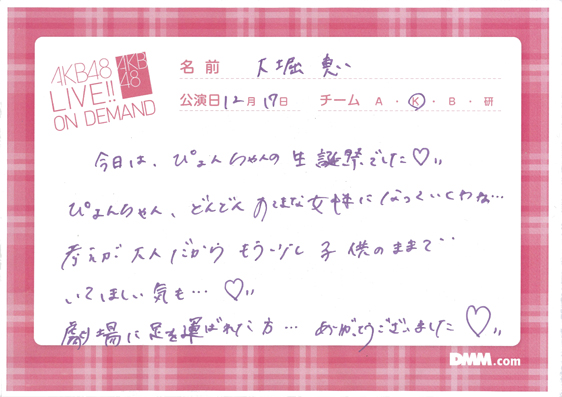 AKB48
LIVE!!
ON DEMAND
AKB
48
名前 大堀恵
公演日 12月17日 チーム A・K・B・研
今日は、ぴょんちゃんの生誕祭でした♡〃
ぴょんちゃん、どんどん 女性になっていくわね…
考えが大人だからもう少し子供のままで‥
いてほしい気も…♡〃
劇場に足を運ばれた方… ありがとうございました♡〃
DMM.com